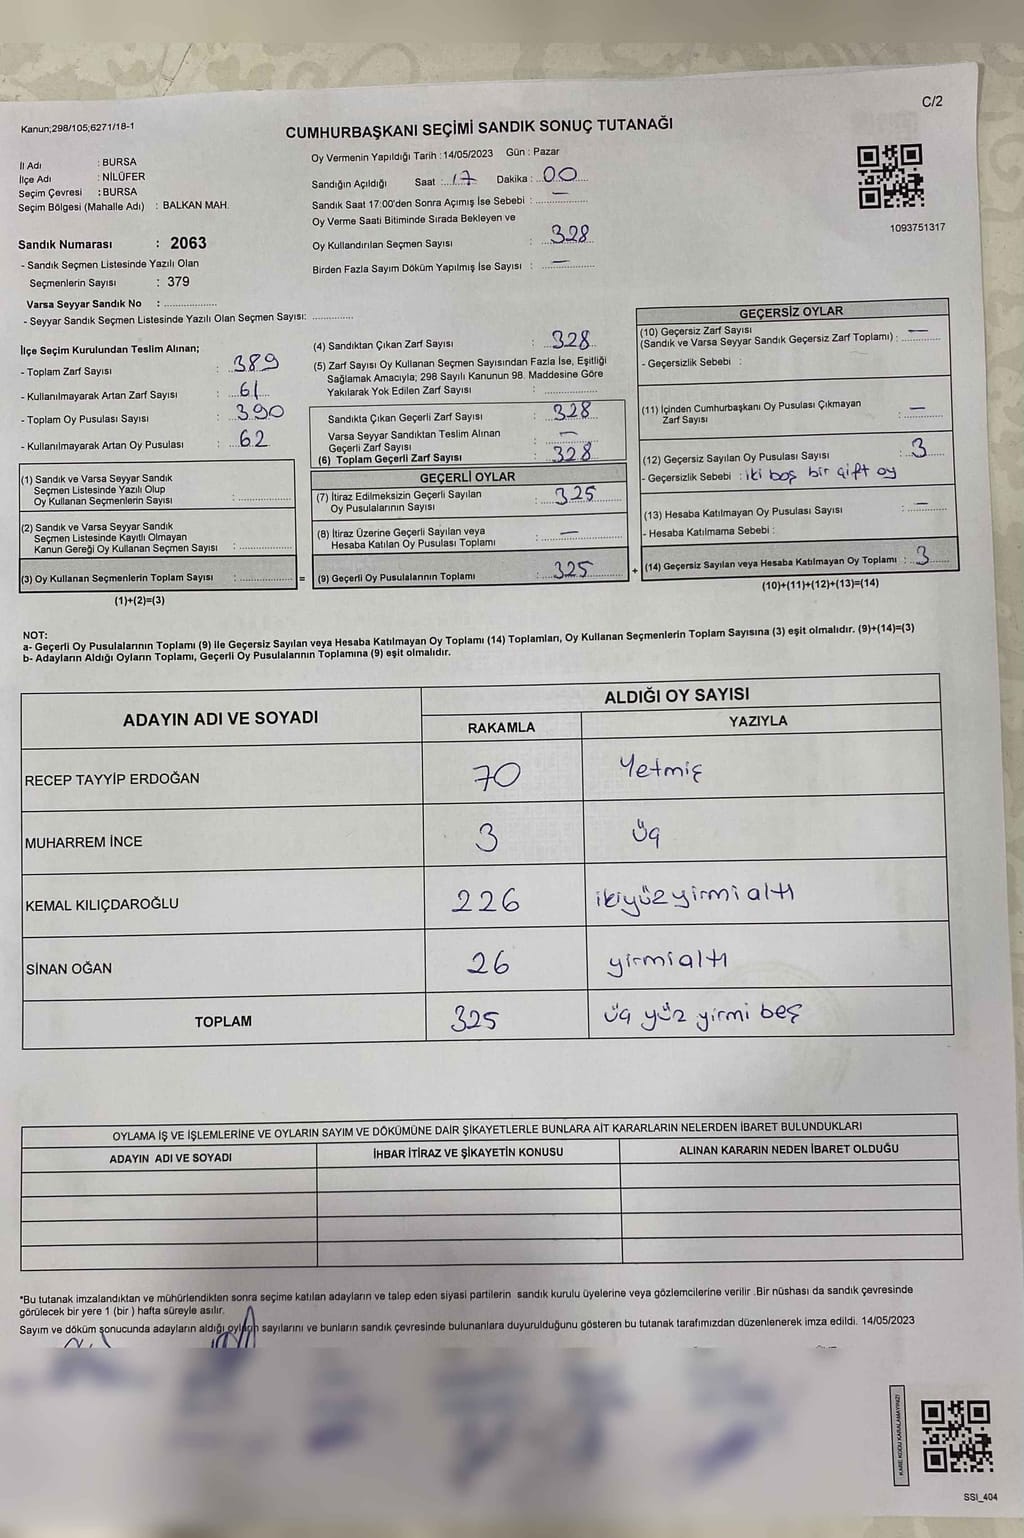 C/2
Kanun;298/105;6271/18-1
CUMHURBAŞKANI SEÇİMİ SANDIK SONUÇ TUTANAĞI
İl Adı : BURSA
İlçe Adı : NİLÜFER
Seçim Çevresi : BURSA
Seçim Bölgesi (Mahalle Adı) : BALKAN MAH.
Sandık Numarası : 2063
- Sandık Seçmen Listesinde Yazılı Olan
Seçmenlerin Sayısı : 379
Varsa Seyyar Sandık No : ..................
- Seyyar Sandık Seçmen Listesinde Yazılı Olan Seçmen Sayısı: ..............
Oy Vermenin Yapıldığı Tarih : 14/05/2023 Gün : Pazar
Sandığın Açıldığı Saat : 17 Dakika : 00
Sandık Saat 17:00'den Sonra Açımış İse Sebebi : —
Oy Verme Saati Bitiminde Sırada Bekleyen ve
Oy Kullandırılan Seçmen Sayısı : 328
Birden Fazla Sayım Döküm Yapılmış İse Sayısı : —
1093751317
İlçe Seçim Kurulundan Teslim Alınan;
- Toplam Zarf Sayısı : 389
- Kullanılmayarak Artan Zarf Sayısı : 61
- Toplam Oy Pusulası Sayısı : 390
- Kullanılmayarak Artan Oy Pusulası : 62
(1) Sandık ve Varsa Seyyar Sandık
Seçmen Listesinde Yazılı Olup
Oy Kullanan Seçmenlerin Sayısı : ..............
(2) Sandık ve Varsa Seyyar Sandık
Seçmen Listesinde Kayıtlı Olmayan
Kanun Gereği Oy Kullanan Seçmen Sayısı : ..............
(3) Oy Kullanan Seçmenlerin Toplam Sayısı : .............. =
(1)+(2)=(3)
(4) Sandıktan Çıkan Zarf Sayısı : 328
(5) Zarf Sayısı Oy Kullanan Seçmen Sayısından Fazla İse, Eşitliği
Sağlamak Amacıyla; 298 Sayılı Kanunun 98. Maddesine Göre
Yakılarak Yok Edilen Zarf Sayısı : ..............
Sandıkta Çıkan Geçerli Zarf Sayısı : 328
Varsa Seyyar Sandıktan Teslim Alınan
Geçerli Zarf Sayısı : —
(6) Toplam Geçerli Zarf Sayısı : 328
GEÇERLİ OYLAR
(7) İtiraz Edilmeksizin Geçerli Sayılan
Oy Pusulalarının Sayısı : 325
(8) İtiraz Üzerine Geçerli Sayılan veya
Hesaba Katılan Oy Pusulası Toplamı : —
(9) Geçerli Oy Pusulalarının Toplamı : 325 +
GEÇERSİZ OYLAR
(10) Geçersiz Zarf Sayısı
(Sandık ve Varsa Seyyar Sandık Geçersiz Zarf Toplamı) : —
- Geçersizlik Sebebi :
(11) İçinden Cumhurbaşkanı Oy Pusulası Çıkmayan
Zarf Sayısı : —
(12) Geçersiz Sayılan Oy Pusulası Sayısı : 3
- Geçersizlik Sebebi : iki boş bir çift oy
(13) Hesaba Katılmayan Oy Pusulası Sayısı : —
- Hesaba Katılmama Sebebi :
(14) Geçersiz Sayılan veya Hesaba Katılmayan Oy Toplamı : 3
(10)+(11)+(12)+(13)=(14)
NOT:
a- Geçerli Oy Pusulalarının Toplamı (9) ile Geçersiz Sayılan veya Hesaba Katılmayan Oy Toplamı (14) Toplamları, Oy Kullanan Seçmenlerin Toplam Sayısına (3) eşit olmalıdır. (9)+(14)=(3)
b- Adayların Aldığı Oyların Toplamı, Geçerli Oy Pusulalarının Toplamına (9) eşit olmalıdır.
ADAYIN ADI VE SOYADI ALDIĞI OY SAYISI
RAKAMLA YAZIYLA
RECEP TAYYİP ERDOĞAN 70 Yetmiş
MUHARREM İNCE 3 üç
KEMAL KILIÇDAROĞLU 226 ikiyüzyirmi altı
SİNAN OĞAN 26 yirmialtı
TOPLAM 325 üç yüz yirmi beş
OYLAMA İŞ VE İŞLEMLERİNE VE OYLARIN SAYIM VE DÖKÜMÜNE DAİR ŞİKAYETLERLE BUNLARA AİT KARARLARIN NELERDEN İBARET BULUNDUKLARI
ADAYIN ADI VE SOYADI İHBAR İTİRAZ VE ŞİKAYETİN KONUSU ALINAN KARARIN NEDEN İBARET OLDUĞU
*Bu tutanak imzalandıktan ve mühürlendikten sonra seçime katılan adayların ve talep eden siyasi partilerin sandık kurulu üyelerine veya gözlemcilerine verilir .Bir nüshası da sandık çevresinde
görülecek bir yere 1 (bir ) hafta süreyle asılır.
Sayım ve döküm sonucunda adayların aldığı oyların sayılarını ve bunların sandık çevresinde bulunanlara duyurulduğunu gösteren bu tutanak tarafımızdan düzenlenerek imza edildi. 14/05/2023
KARE KODU KARALAMAYINIZ!
SSI_404